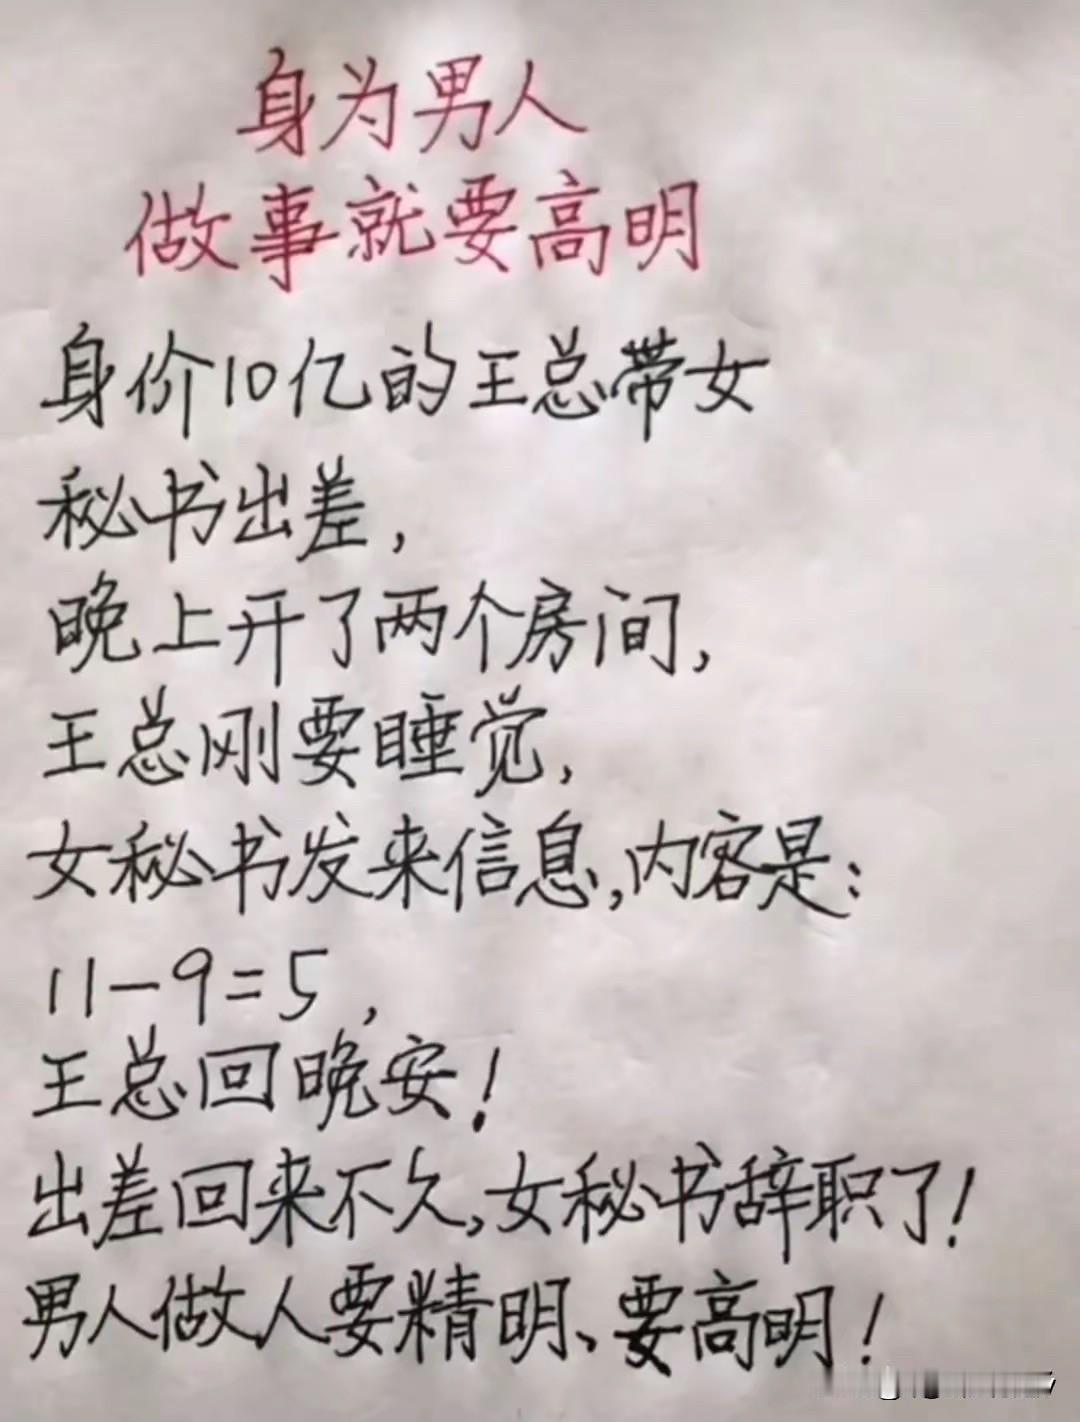 身为男人
做事就要高明
身价10亿的王总带女
秘书出差,
晚上开了两个房间,
王总刚要睡觉,
女秘书发来信息,内容是:
11-9=5,
王总回晚安!
出差回来不久,女秘书辞职了!
男人做人要精明、要高明!